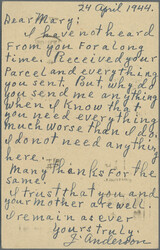 24 April 1944.
Dear Mary:
I have not heard
From you For a long
time. I received your
Parcel and everything
you sent. But why do
you send me anything
when I know that
you need everything
much worse than I do.
I do not need anything
here.
Many thanks For the
same.
I trust that you and
your Mother are well.
I remain as ever
yours truly.
J. Anderson